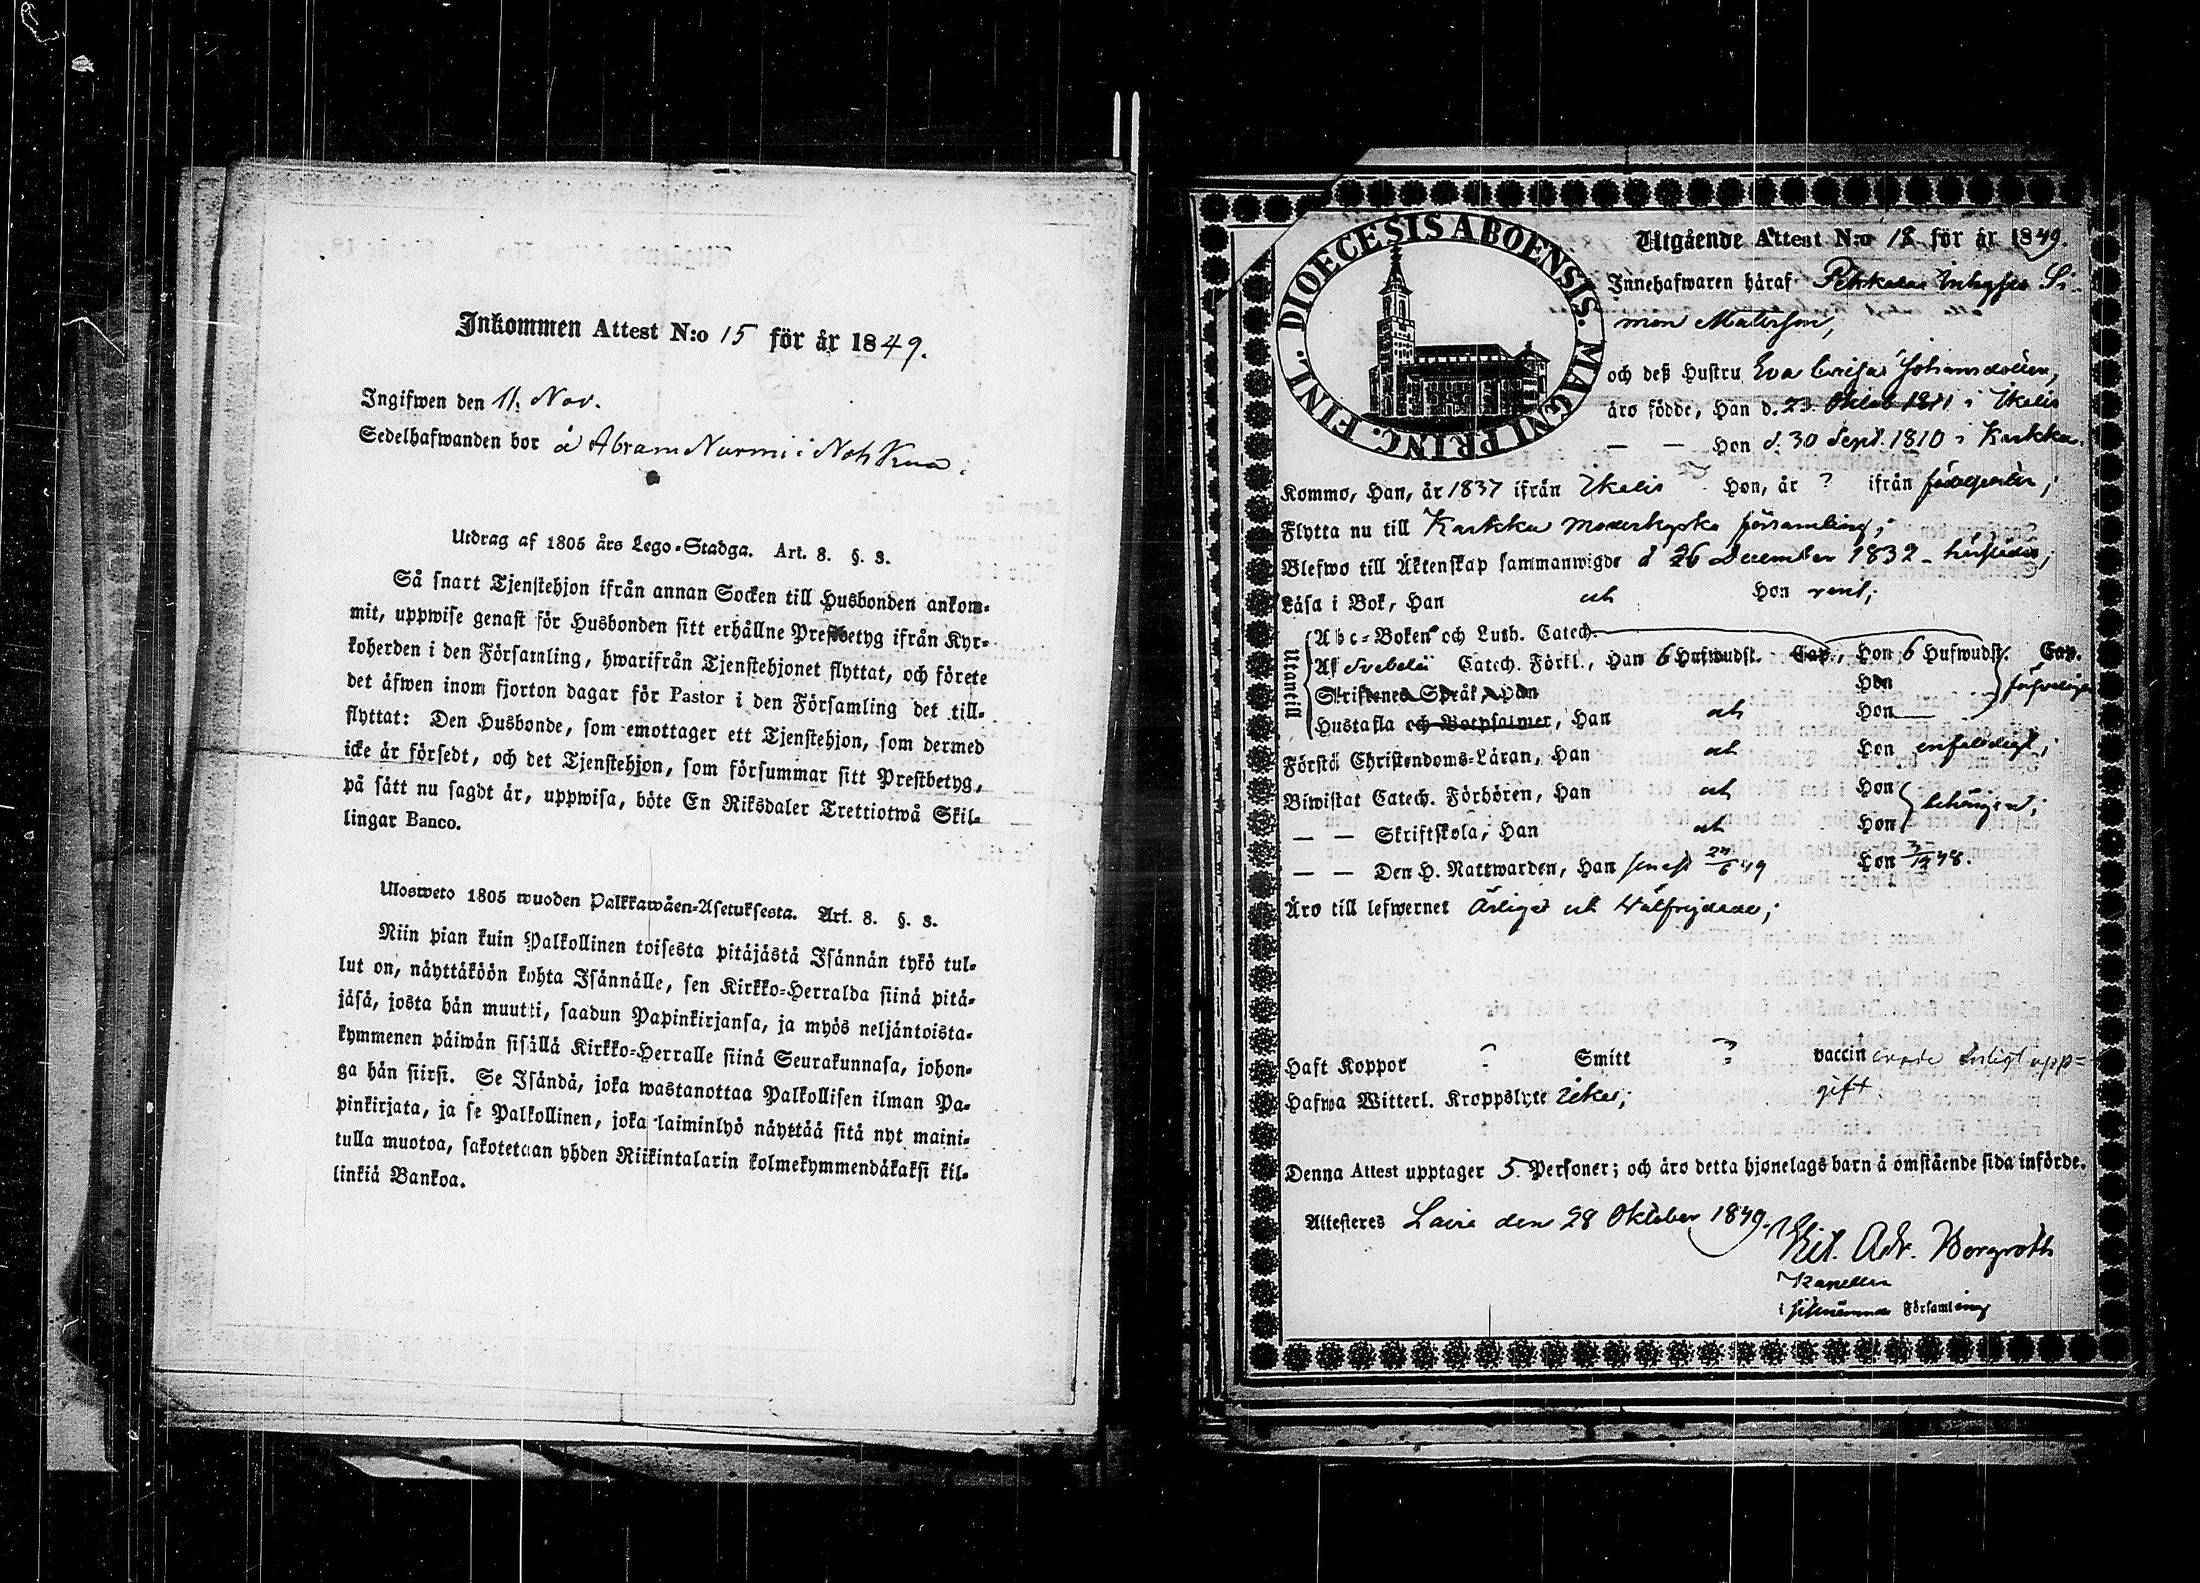 Inkommen Attest N:o 15 för år 1849.
Ingifwen den 11. Nov.
Sedelhafwanden bor å Abram Nurmi i
Utdrag af 1805 års Lego-Stadga. Art. 8. §. 3.
Så snart Tjenstehjon ifrån annan Socken till Husbonden ankom-
mit, uppwise genast för Husbonden sitt erhållne Prestbetyg ifrån Kyr-
koherden i den Församling, hwarifrån Tjenstehjonet flyttat, och förete
det äfwen inom fjorton dagar för Pastor i den Församling det till-
flyttat: Den Husbonde, som emottager ett Tjenstehjon, som dermed
icke är försedt, och det Tjenstehjon, som försummar sitt Prestbetyg,
på sätt nu sagdt är, uppwisa, böte En Riksdaler Trettiotwå Skil-
lingar Banco.
Ulosweto 1805 wuoden Palkkawäen-Asetuksesta. Art. 8. §. 3.
Niin pian kuin Palkollinen toisesta pitäjästä Isännän tykö tul-
lut on, näyttäköön kohta Isännälle, sen Kirkko-Herralda siinä pitä-
jäsä, josta hän muutti, saadun Papinkirjansa, ja myös neljäntoista-
kymmenen päiwän sisällä Kirkko-Herralle siinä Seurakunnasa, johon-
ga hän siirsi. Se Isändä, joka wastanottaa Palkollisen ilman Pa-
pinkirjata, ja se Palkollinen, joka laiminlyö näyttää sitä nyt maini-
tulla muotoa, sakotetaan yhden Riikintalarin kolmekymmendäkaksi kil-
linkiä Bankoa.
DIOECESIS ABOENSIS. MAGNI PRINC. FINL.
Utgående Attest N:o 18 för år 1849.
Innehafwaren häraf Pekkalas Inhyses Si-
mon Matsson,
och deß Hustru Eva Johansdotter,
äro födde, Han d. 23 Oktob 1811 i Ikalis
— — Hon d. 30 Sept. 1810 i Karkku.
Kommo, Han, år 1837 ifrån Ikalis Hon, år ? ifrån
Flytta nu till Karkku Moderkyrko församling;
Blefwo till Äktenskap sammanwigde d 26 December 1832 härstädes;
Läsa i Bok, Han och Hon rent;
Utantill
Abc-Boken och Luth. Catech.
Af Svebelii Catech. Förkl., Han 6 Hufwudst. Cap., Hon 6 Hufwudst. Cap.
Skriftenes Språk Han Hon
Hustafla och Botpsalmer, Han och Hon
Förstå Christendoms-Läran, Han och Hon enfaldigt;
Biwistat Catech. Förhören, Han och Hon behörigen;
— — Skriftskola, Han och Hon
— — Den H. Nattwarden, Han senast 24/6 49 Hon 48.
Äro till lefwernet Ärliga och Wälfrejdade;
Haft Koppor ? Smitt ? vaccinerade enligt upp-
gift
Hafwa Witterl. Kroppslyte icke;
Denna Attest upptager 5 Personer; och äro detta hjonelags barn å omstående sida införde.
Attesteras Lavia den 28 Oktober 1849.
Adr. Borgroth
Kapellan
i Församling